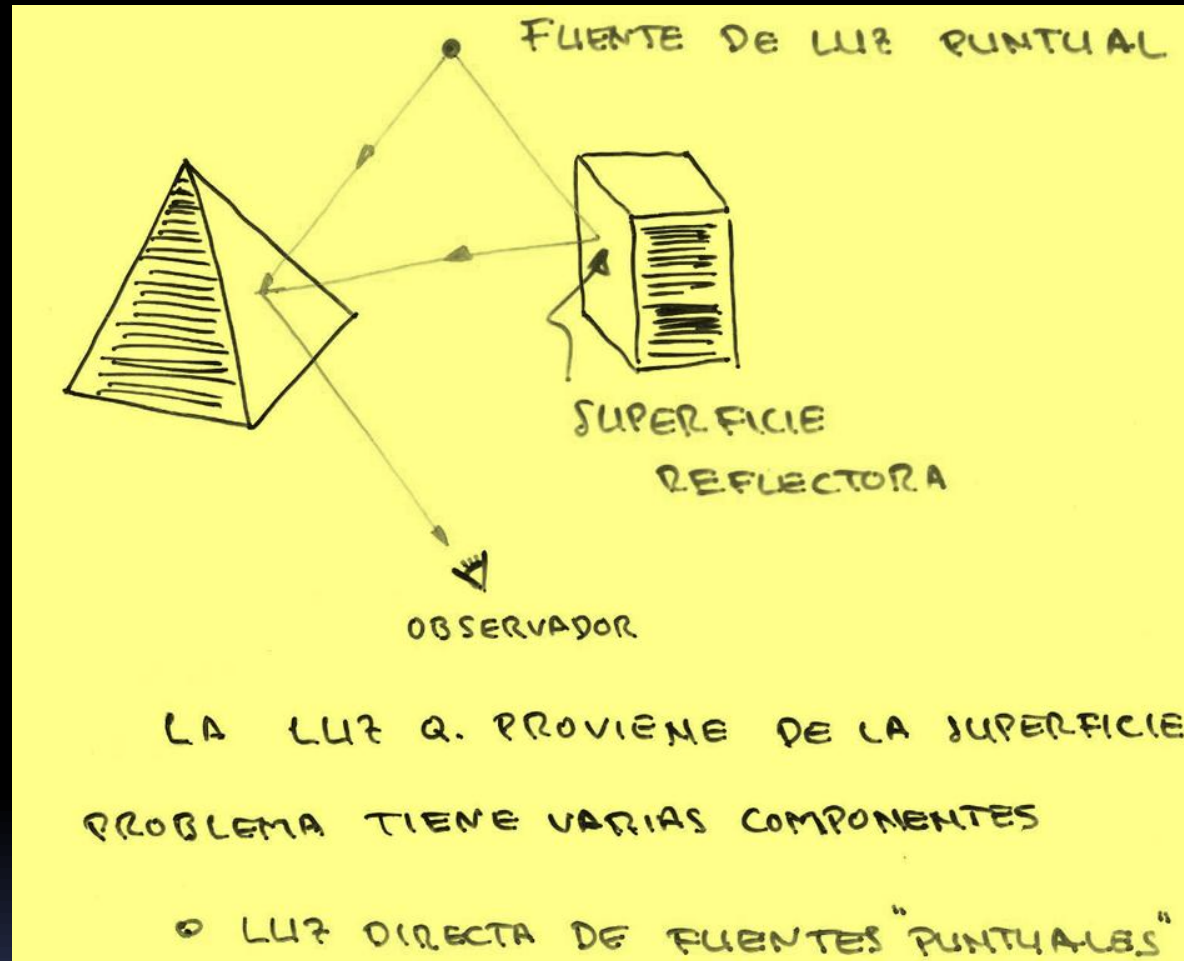 FUENTE DE LUZ PUNTUAL
SUPERFICIE
REFLECTORA
OBSERVADOR
LA LUZ Q. PROVIENE DE LA SUPERFICIE
PROBLEMA TIENE VARIAS COMPONENTES
o LUZ DIRECTA DE FUENTES "PUNTUALES"